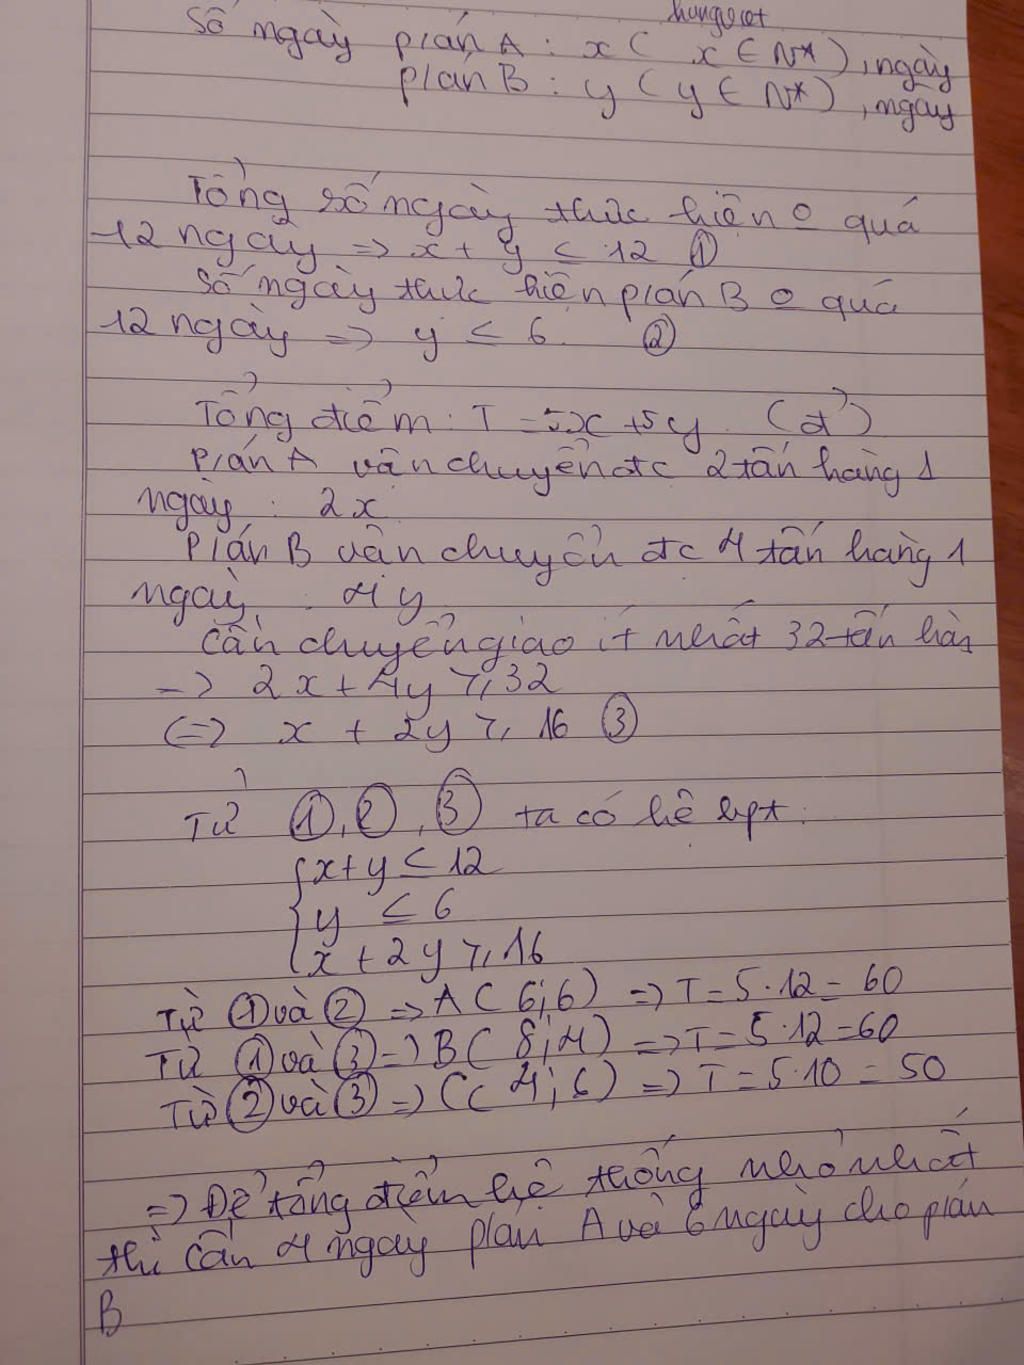 Số ngày p/án A : x ( x ∈ N* ), ngày
p/án B : y ( y ∈ N* ), ngày
Tổng số ngày thực hiện 0 quá
12 ngày => x + y ≤ 12 ①
Số ngày thực hiện p/án B 0 quá
12 ngày => y ≤ 6 ②
Tổng điểm : T = 5x + 5y (đ)
P/án A vận chuyển đc 2 tấn hàng 1
ngày : 2x
P/án B vận chuyển đc 4 tấn hàng 1
ngày : 4y
Cần chuyển giao ít nhất 32 tấn hàn
-> 2x + 4y ≥ 32
<=> x + 2y ≥ 16 ③
Từ ①, ②, ③ ta có hệ bpt :
{ x + y ≤ 12
y ≤ 6
x + 2y ≥ 16
Từ ① và ② => A ( 6; 6 ) => T = 5 . 12 = 60
Từ ① và ③ => B ( 8; 4 ) => T = 5 . 12 = 60
Từ ② và ③ => C ( 4; 6 ) => T = 5 . 10 = 50
=> Để tổng điểm hệ thống nhỏ nhất
thì cần 4 ngày p/án A và 6 ngày cho p/án
B